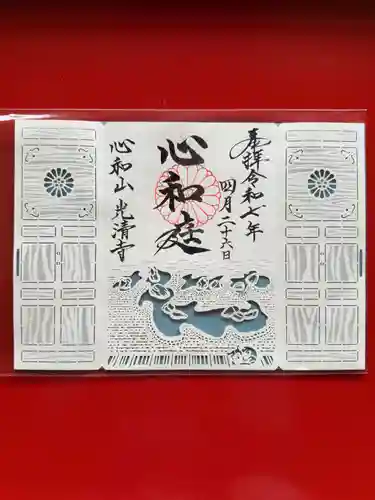 奉拝令和七年
四月二十六日
心和庭
心和山 光清寺